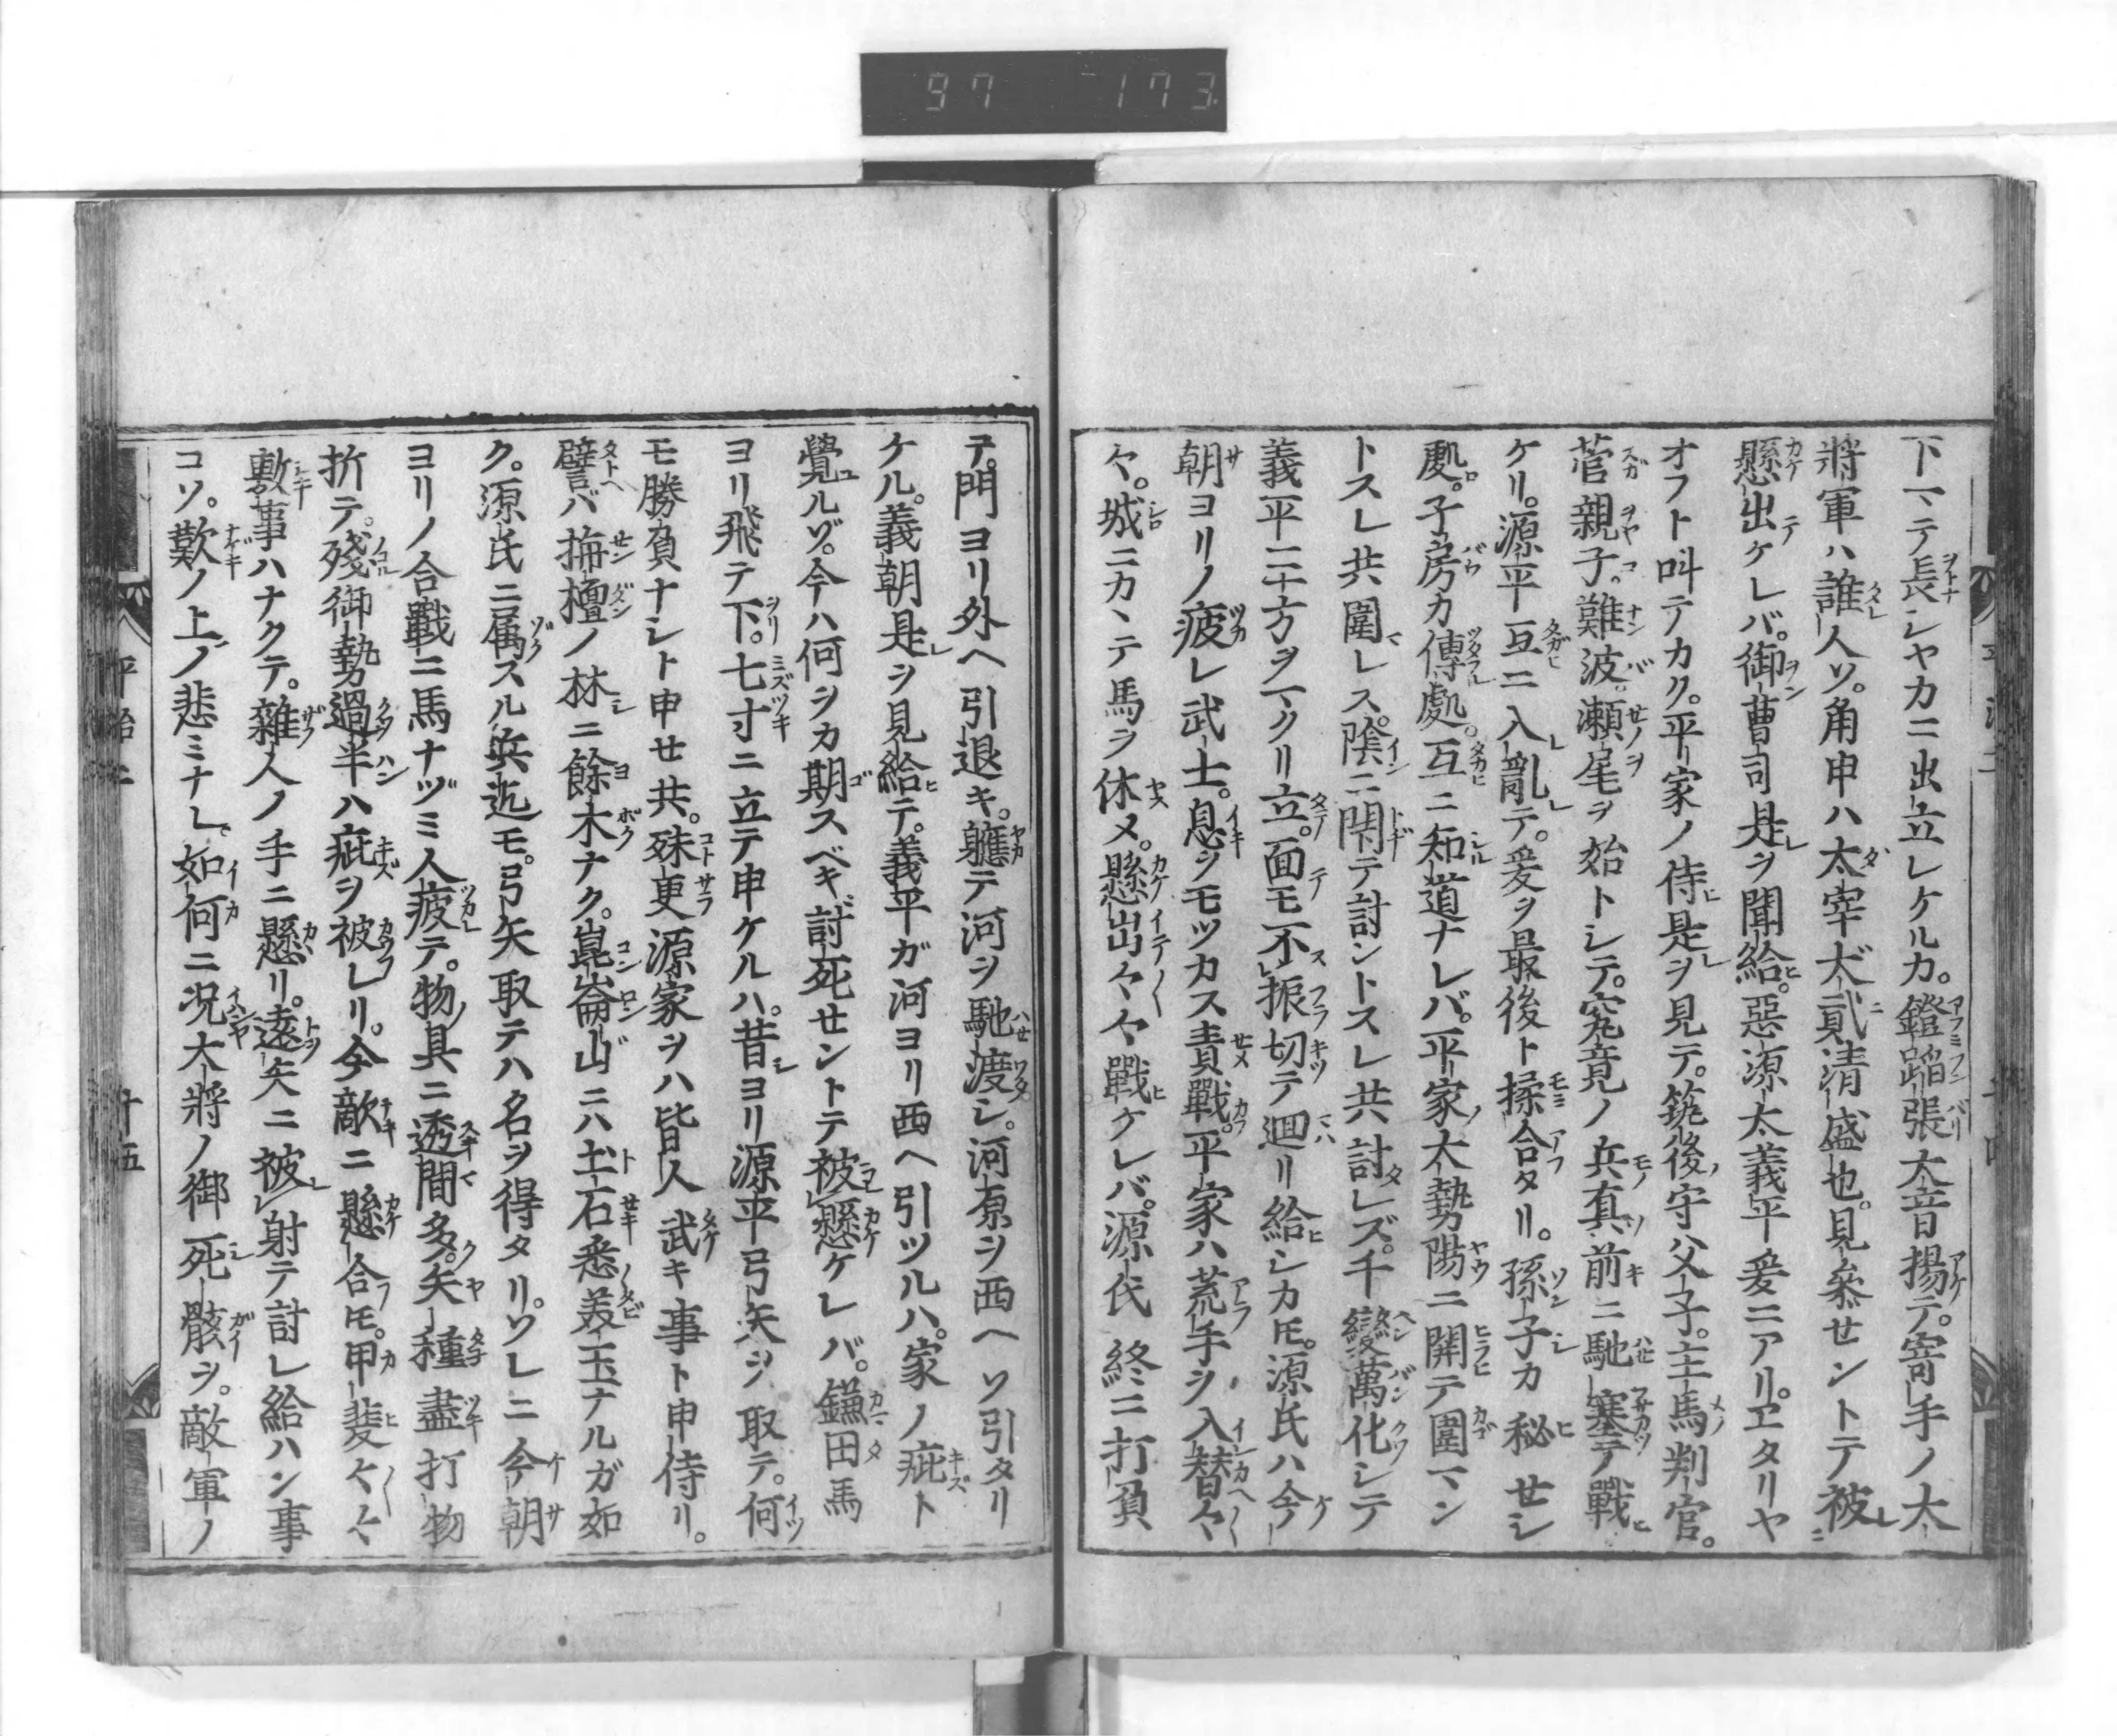 97 173
下マテ長シヤカニ出立レケルカ。鐙蹈張大音揚テ。寄手ノ大
將軍ハ誰人ソ。角申ハ太宰大貳清盛也。見参セントテ被
懸出ケレバ。御曹司是ヲ聞給。惡源太義平爰ニアリ。エタリヤ
オフト叫テカク。平家ノ侍是ヲ見テ。筑後守父子。主馬判官。
菅親子。難波。瀬尾ヲ始トシテ。究竟ノ兵真前ニ馳塞テノ戰
ケリ。源平互ニ入亂テ。爰ヲ最後ト揉合タリ。孫子カ秘セシ
處。子房カ傳處。互ニ知道ナレバ。平家ノ大勢陽ニ開テ圍マン
トスレ共圍レス。陰ニ閉テ討ントスレ共討レズ。千變萬化シテ
義平三十方ヲマクリ立。面モ不振切テ廻リ給シカ𪜈。源氏ハ今
朝ヨリノ疲レ武士。息ヲモツカス責戰。平家ハ荒手ヲ入替々
々。城ニカヽテ馬ヲ休メ。懸出々々戰ケレバ。源氏終ニ打負
テ。門ヨリ外ヘ引退キ。軈テ河ヲ馳渡シ。河原ヲ西ヘソ引タリ
ケル。義朝是ヲ見給テ。義平ガ河ヨリ西ヘ引ツルハ。家ノ疵ト
覺ルゾ。今ハ何ヲカ期スベキ。討死セントテ被懸ケレバ。鎌田馬
ヨリ飛テ下。七寸ニ立テ申ケルハ。昔ヨリ源平弓矢ヲ取テ。何
モ勝負ナシト申セ共。殊更源家ヲハ皆人武キ事ト申侍リ。
譬バ栴檀ノ林ニ餘木ナク。崑崙山ニハ土石悉美玉ナルガ如
ク。源氏ニ属スル兵迄モ。弓矢取テハ名ヲ得タリ。ソレニ今朝
ヨリノ合戰ニ馬ナヅミ人疲テ。物具ニ透間多。矢種盡打物
折テ。殘御勢過半ハ疵ヲ被レリ。今敵ニ懸合𪜈。甲斐々々
敷事ハナクテ。雜人ノ手ニ懸リ。遠矢ニ被射テ討レ給ハン事
コソ。歎ノ上ノ悲ミナレ。如何ニ况大將ノ御死骸ヲ。敵軍ノ
平治二 十五